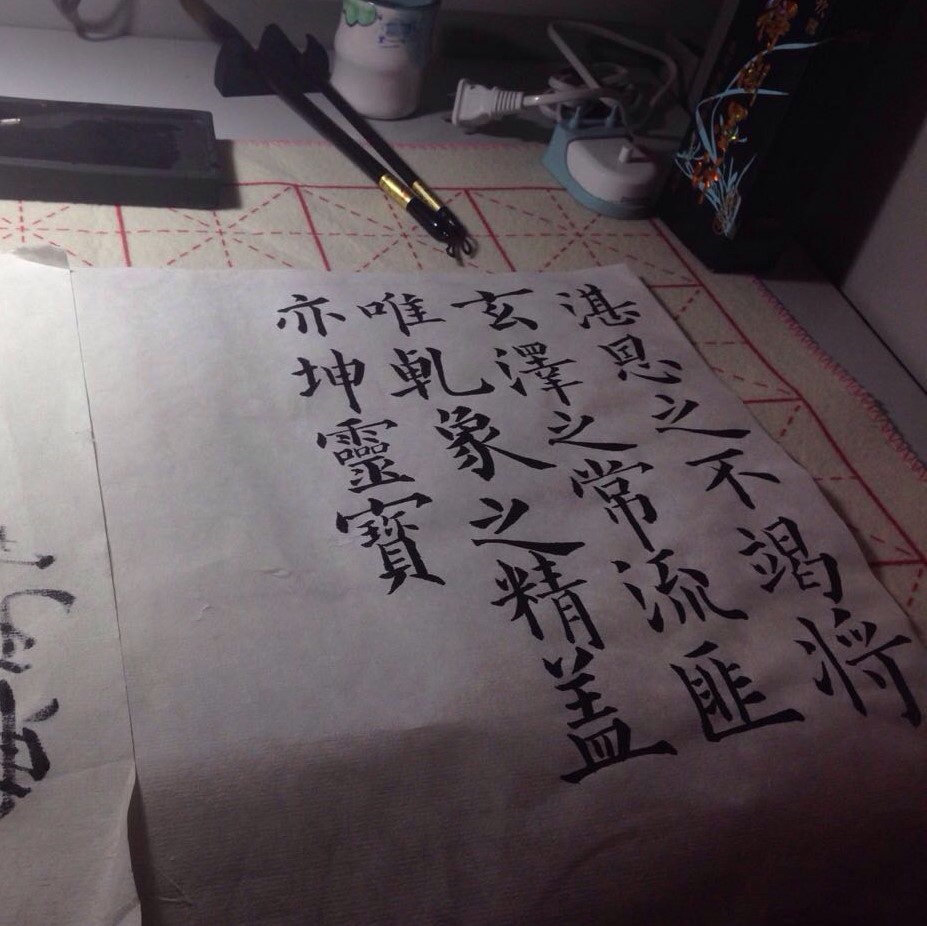 湛恩之不竭将
玄澤之常流匪
唯乹象之精盖
亦坤靈寶